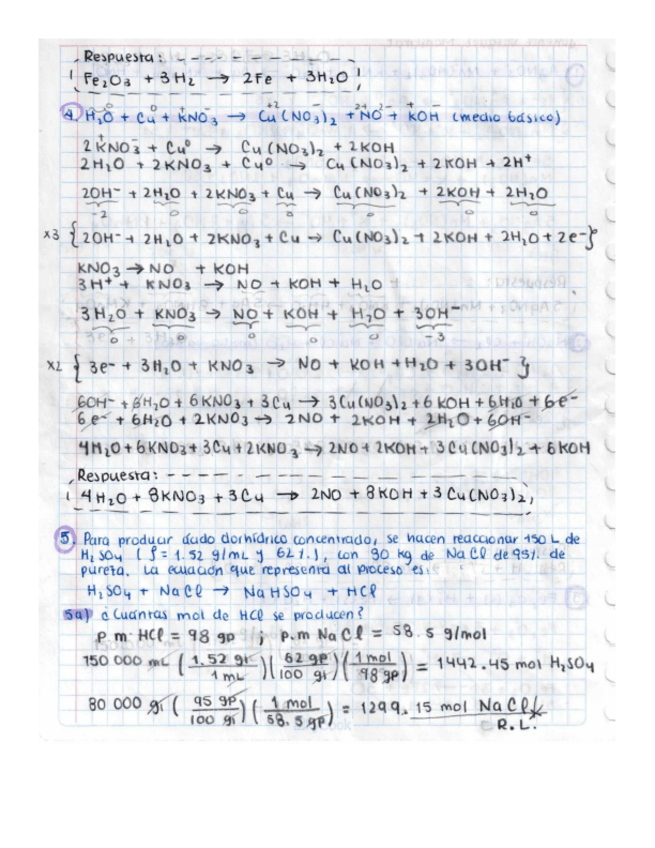 Respuesta:
Fe₂O₃ + 3H₂ → 2Fe + 3H₂O
4. H₂O + Cu + KNO₃ → Cu(NO₃)₂ + NO + KOH (medio básico)
2KNO₃ + Cu⁰ → Cu(NO₃)₂ + 2KOH
2H₂O + 2KNO₃ + Cu⁰ → Cu(NO₃)₂ + 2KOH + 2H⁺
2OH⁻ + 2H₂O + 2KNO₃ + Cu → Cu(NO₃)₂ + 2KOH + 2H₂O
-2 0 0 0 0 0 0
x3 {2OH⁻ + 2H₂O + 2KNO₃ + Cu → Cu(NO₃)₂ + 2KOH + 2H₂O + 2e⁻}
KNO₃ → NO + KOH
3H⁺ + KNO₃ → NO + KOH + H₂O
3H₂O + KNO₃ → NO + KOH + H₂O + 3OH⁻
0 0 0 0 0 -3
x2 {3e⁻ + 3H₂O + KNO₃ → NO + KOH + H₂O + 3OH⁻}
6OH⁻ + 6H₂O + 6KNO₃ + 3Cu → 3Cu(NO₃)₂ + 6KOH + 6H₂O + 6e⁻
6e⁻ + 6H₂O + 2KNO₃ → 2NO + 2KOH + 2H₂O + 6OH⁻
4H₂O + 6KNO₃ + 3Cu + 2KNO₃ → 2NO + 2KOH + 3Cu(NO₃)₂ + 6KOH
Respuesta:
4H₂O + 8KNO₃ + 3Cu → 2NO + 8KOH + 3Cu(NO₃)₂
5. Para producir ácido clorhídrico concentrado, se hacen reaccionar 150 L de
H₂SO₄ (ρ = 1.52 g/mL y 62%), con 90 kg de NaCl de 95% de
pureza. La ecuación que representa al proceso es:
H₂SO₄ + NaCl → NaHSO₄ + HCl
5a) ¿Cuántas mol de HCl se producen?
p.m. HCl = 98 gp ; p.m NaCl = 58.5 g/mol
150 000 mL (1.52 gi / 1 mL)(62 gp / 100 gi)(1 mol / 98 gp) = 1442.45 mol H₂SO₄
80 000 gi (95 gp / 100 gi)(1 mol / 58.5 gp) = 1299.15 mol NaCl
R.L.